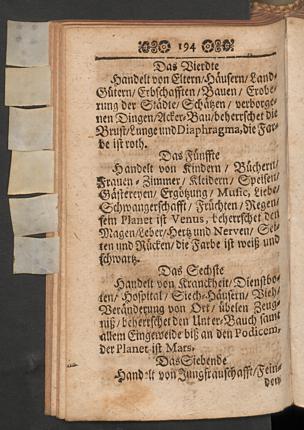 194
Das Vierdte
Handelt von Eltern/Häusern/Land-
Gütern/Erbschafften/Bauen/Erobe-
rung der Städte/Schätzen/verborge-
nen Dingen/Acker-Bau/beherrschet die
Brust/Lunge und Diaphragma, die Far-
be ist roth.
Das Fünffte
Handelt von Kindern/Büchern/
Frauen-Zimmer/Kleidern/Speisen/
Gästereyen/Ergötzung/Music, Liebe/
Schwangerschafft/Früchten/Regen/
sein Planet ist Venus, beherrschet den
Magen/Leber/Hertz und Nerven/Sei-
ten und Rücken/die Farbe ist weiß und
schwartz.
Das Sechste
Handelt von Kranckheit/Dienstbo-
ten/Hospital/Siech-Häusern/Vieh/
Veränderung von Ort/übelen Zeug-
nüß/beherrschet den Unter-Bauch samt
allem Eingeweide biß an den Podicem,
der Planet ist Mars.
Das Siebende
Handelt von Jungfrauschafft/Fein-
den